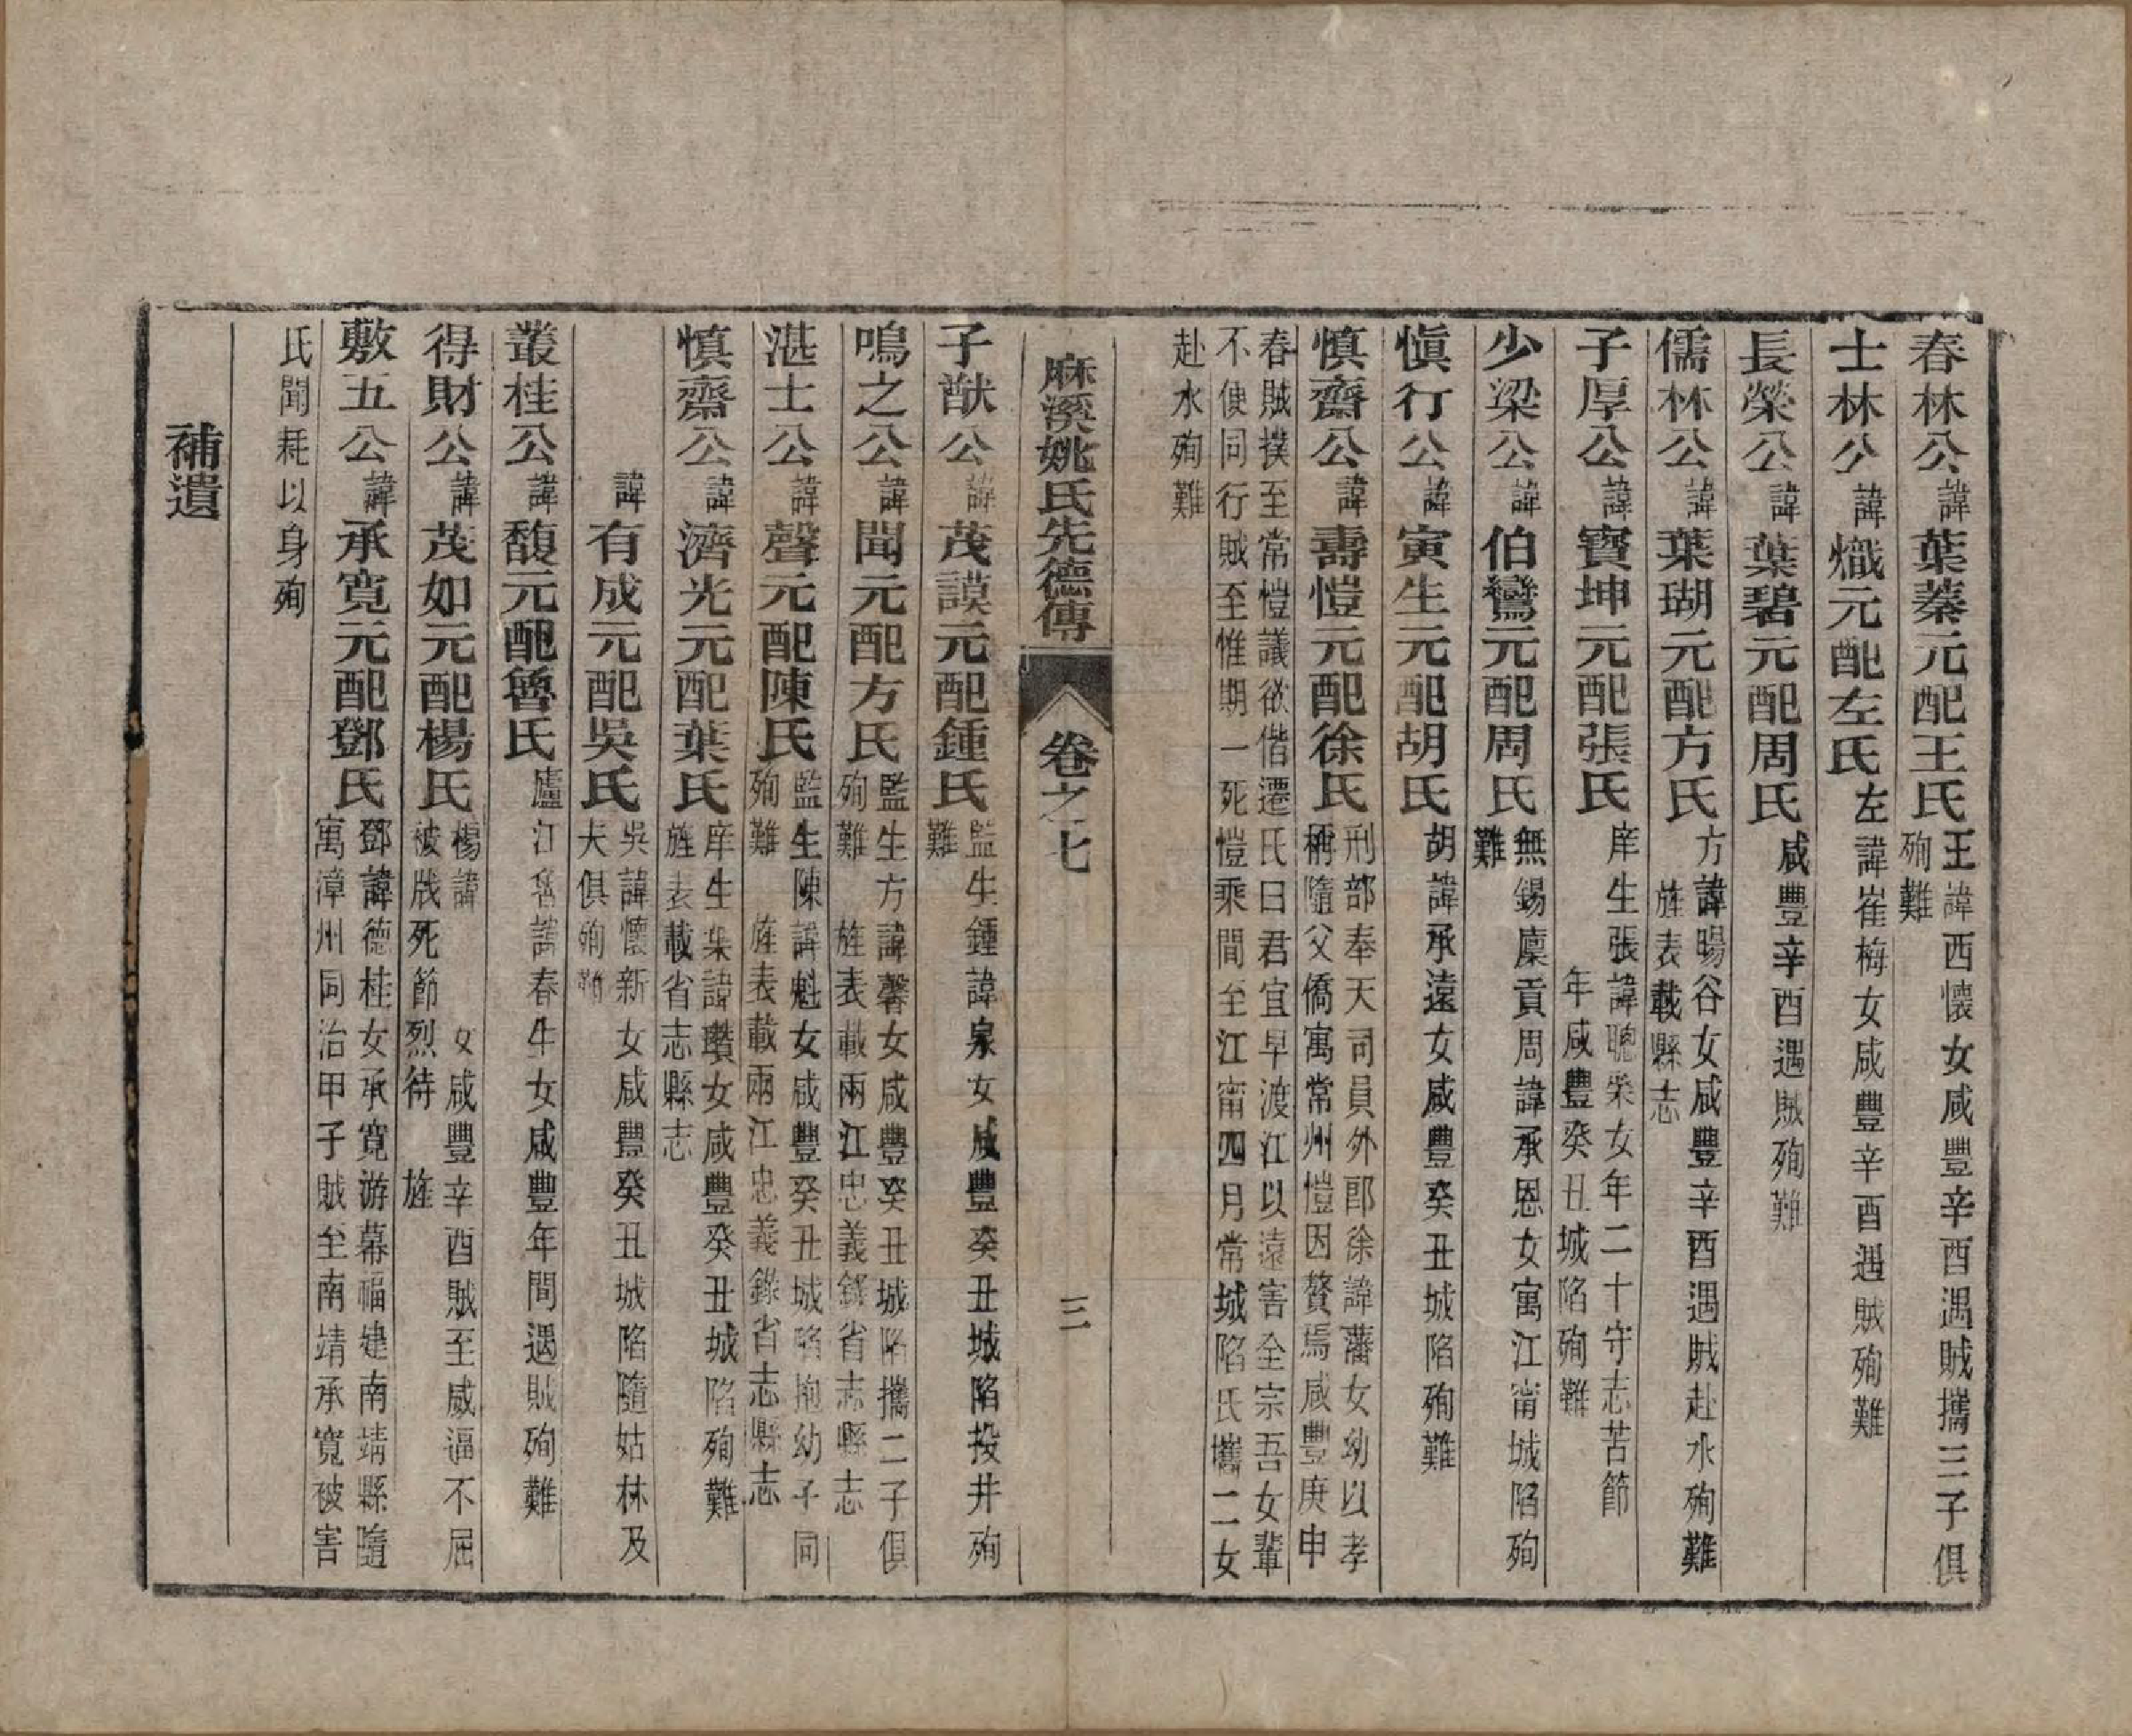 春林公諱葉蓁元配王氏王諱西懷女咸豐辛酉遇賊攜三子俱殉難
士林公諱熾元配左氏左諱崔梅女咸豐辛酉遇賊殉難
長榮公諱葉碧元配周氏咸豐辛酉遇賊殉難
儒林公諱葉瑚元配方氏方諱暘谷女咸豐辛酉遇賊赴水殉難旌表載縣志
子厚公諱寶坤元配張氏庠生張諱聰梁女年二十守志苦節年咸豐癸丑城陷殉難
少梁公諱伯鸞元配周氏無錫廩貢周諱承恩女寓江甯城陷殉難
愼行公諱寅生元配胡氏胡諱承遠女咸豐癸丑城陷殉難
慎齋公諱壽愷元配徐氏刑部奉天司員外郎徐諱藩女幼以孝稱隨父僑寓常州愷因贅焉咸豐庚申
春賊撲至常愷議欲偕遷氏曰君宜早渡江以遠害全宗吾女輩
不便同行賊至惟期一死愷乘間至江甯四月常城陷氏攜二女
赴水殉難
麻溪姚氏先德傳 卷之七 三
子猷公諱茂謨元配鍾氏監生鍾諱泉女咸豐癸丑城陷投井殉難
鳴之公諱聞元配方氏監生方諱馨女咸豐癸丑城陷攜二子俱殉難 旌表載兩江忠義錄省志縣志
湛士公諱聲元配陳氏監生陳諱魁女咸豐癸丑城陷抱幼子同殉難 旌表載兩江忠義錄省志縣志
慎齋公諱濟光元配葉氏庠生葉諱瓚女咸豐癸丑城陷殉難旌表載省志縣志
諱有成元配吳氏吳諱懷新女咸豐癸丑城陷隨姑林及夫俱殉難
叢桂公諱馥元配魯氏廬江魯諱春生女咸豐年間遇賊殉難
得財公諱茂如元配楊氏楊諱 女咸豐辛酉賊至威逼不屈被戕死節烈待 旌
敷五公諱承寬元配鄧氏鄧諱德桂女承寬游幕福建南靖縣隨寓漳州同治甲子賊至南靖承寬被害
氏聞耗以身殉
補遺